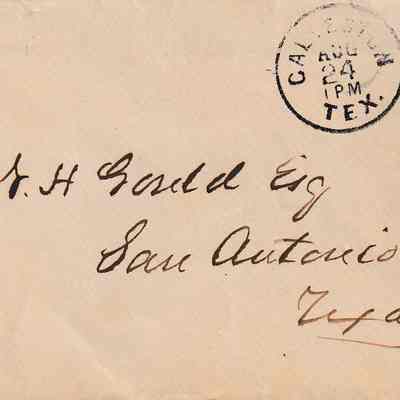 GALVESTON
AUG
24
1 PM
TEX.
H Gould Esq
San Antonio
Texa